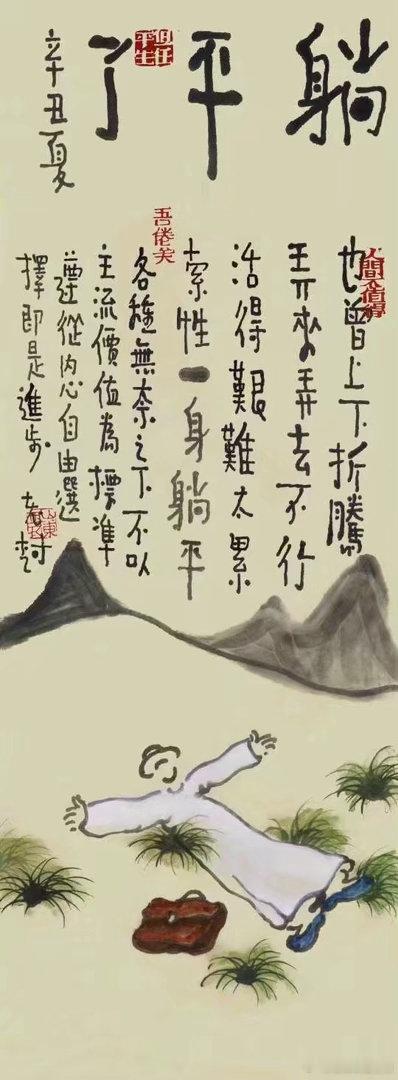 躺平了
辛丑夏
人間不值得
也曾上下折騰
弄來弄去不行
活得艱難太累
索性一身躺平
各種無奈之下不以
主流價值為標準
遵從內心自由選
擇即是進步 老樹